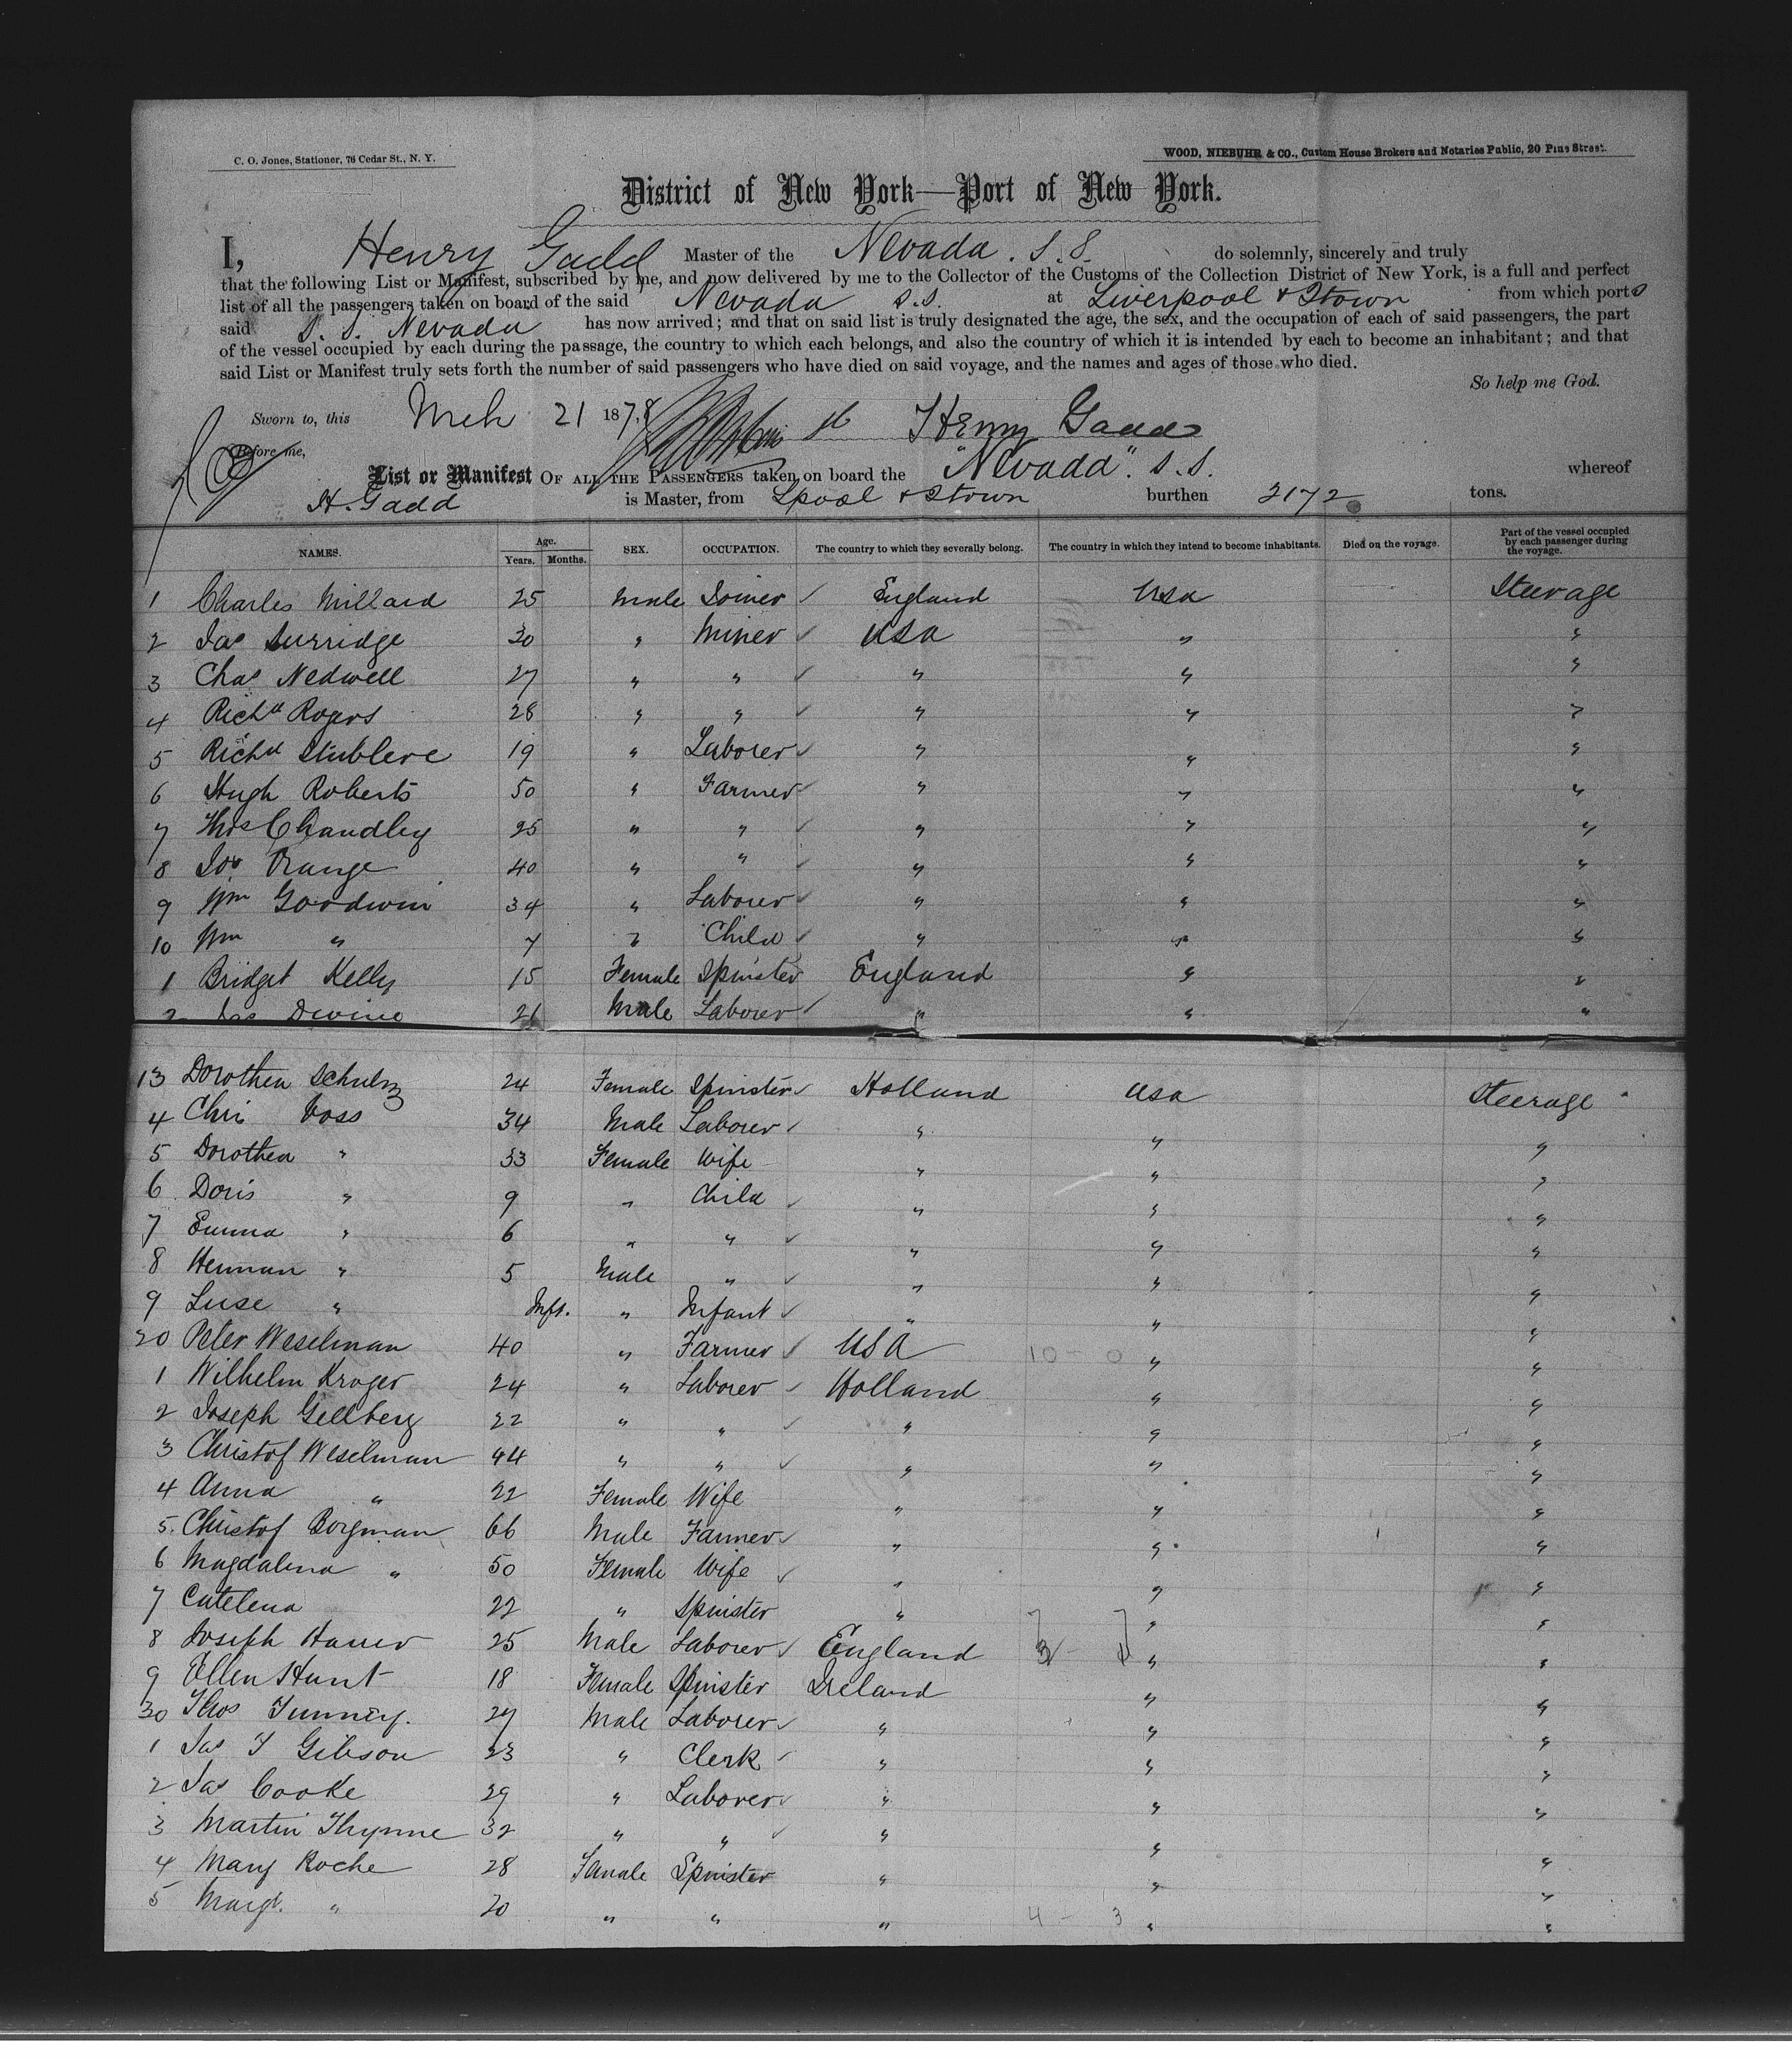 C. O. Jones, Stationer, 76 Cedar St., N. Y.
WOOD, NIEBUHR & CO., Custom House Brokers and Notaries Public, 20 Pine Street.
District of New York—Port of New York.
I, Henry Gadd Master of the Nevada S.S. do solemnly, sincerely and truly
that the following List or Manifest, subscribed by me, and now delivered by me to the Collector of the Customs of the Collection District of New York, is a full and perfect
list of all the passengers taken on board of the said Nevada S.S. at Liverpool & Qtown from which ports
said S.S. Nevada has now arrived; and that on said list is truly designated the age, the sex, and the occupation of each of said passengers, the part
of the vessel occupied by each during the passage, the country to which each belongs, and also the country of which it is intended by each to become an inhabitant; and that
said List or Manifest truly sets forth the number of said passengers who have died on said voyage, and the names and ages of those who died.
So help me God.
Sworn to, this Mch 21 1878 Henry Gadd
Before me,
List or Manifest OF ALL THE PASSENGERS taken on board the "Nevada" S.S. whereof
H. Gadd is Master, from Lpool & Qtown burthen 2172 tons.
NAMES. Age. Years. Months. SEX. OCCUPATION. The country to which they severally belong. The country in which they intend to become inhabitants. Died on the voyage. Part of the vessel occupied by each passenger during the voyage.
1 Charles Millard 25 Male Joiner England USA Steerage
2 Jas Surridge 30 " Miner USA " "
3 Chas Nedwell 27 " " " " "
4 Richd Rogers 28 " " " " "
5 Richd 19 " Laborer " " "
6 Hugh Roberts 50 " Farmer " " "
7 Thos Chandley 25 " " " " "
8 Jos Orange 40 " " " " "
9 Wm Goodwin 34 " Laborer " " "
10 Wm " 7 " Child " " "
1 Bridget Kelly 15 Female Spinster England " "
2 Jas Devine 21 Male Laborer " " "
13 Dorothea Schulz 24 Female Spinster Holland USA Steerage
4 Chri Voss 34 Male Laborer " " "
5 Dorothea " 33 Female Wife " " "
6 Doris " 9 " Child " " "
7 Emma " 6 " " " " "
8 Herman " 5 Male " " " "
9 Luse " Inft. " Infant " " "
20 Peter Weselman 40 " Farmer USA 10 - 0 " "
1 Wilhelm Kruger 24 " Laborer Holland " "
2 Joseph Gellberg 22 " " " " "
3 Christof Weselman 44 " " " " "
4 Anna " 22 Female Wife " " "
5. Christof Borgman 66 Male Farmer " " "
6 Magdalena " 50 Female Wife " " "
7 Catelena 22 " Spinster " " "
8 Joseph 25 Male Laborer England " "
9 Ellen Hunt 18 Female Spinster Ireland " "
30 Thos Tunney. 27 Male Laborer " " "
1 Jas T Gibson 23 " Clerk " " "
2 Jas Cooke 29 " Laborer " " "
3 Martin Thynne 32 " " " " "
4 Mary Roche 28 Female Spinster " " "
5 Margt. " 20 " " " 4 - 3 " "